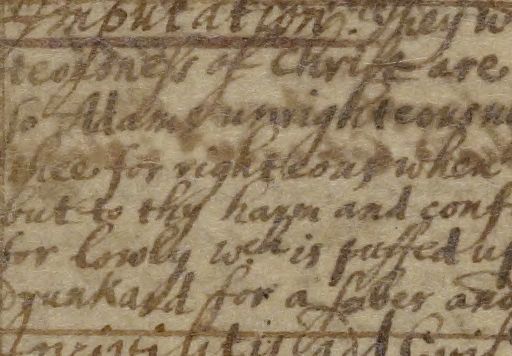 Imputation. They w
teousness of Christ are
so Adams unrighteousn
thee for righteous when
but to thy harm and conf
for lowly wch is puffed up
Drunkard for a sober and